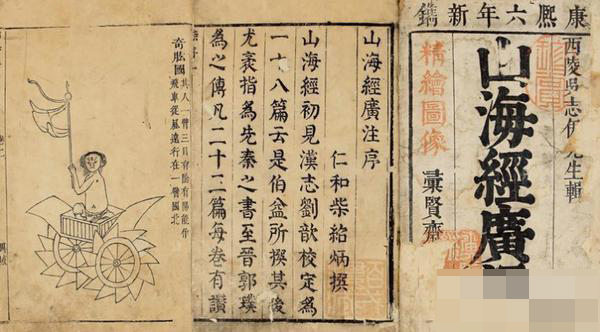 康熙六年新鐫
西陵吳志伊先生輯
山海經廣
精繪圖像
彙賢齋
山海經廣注序
仁和柴紹炳撰
山海經初見漢志劉歆校定為
一十八篇云是伯益所撰其後
尤袤指為先秦之書至晉郭璞
為之傳凡二十二篇每卷有讚
奇肱國
其人一臂三目有陰有陽能作
飛車從風遠行在一臂國北